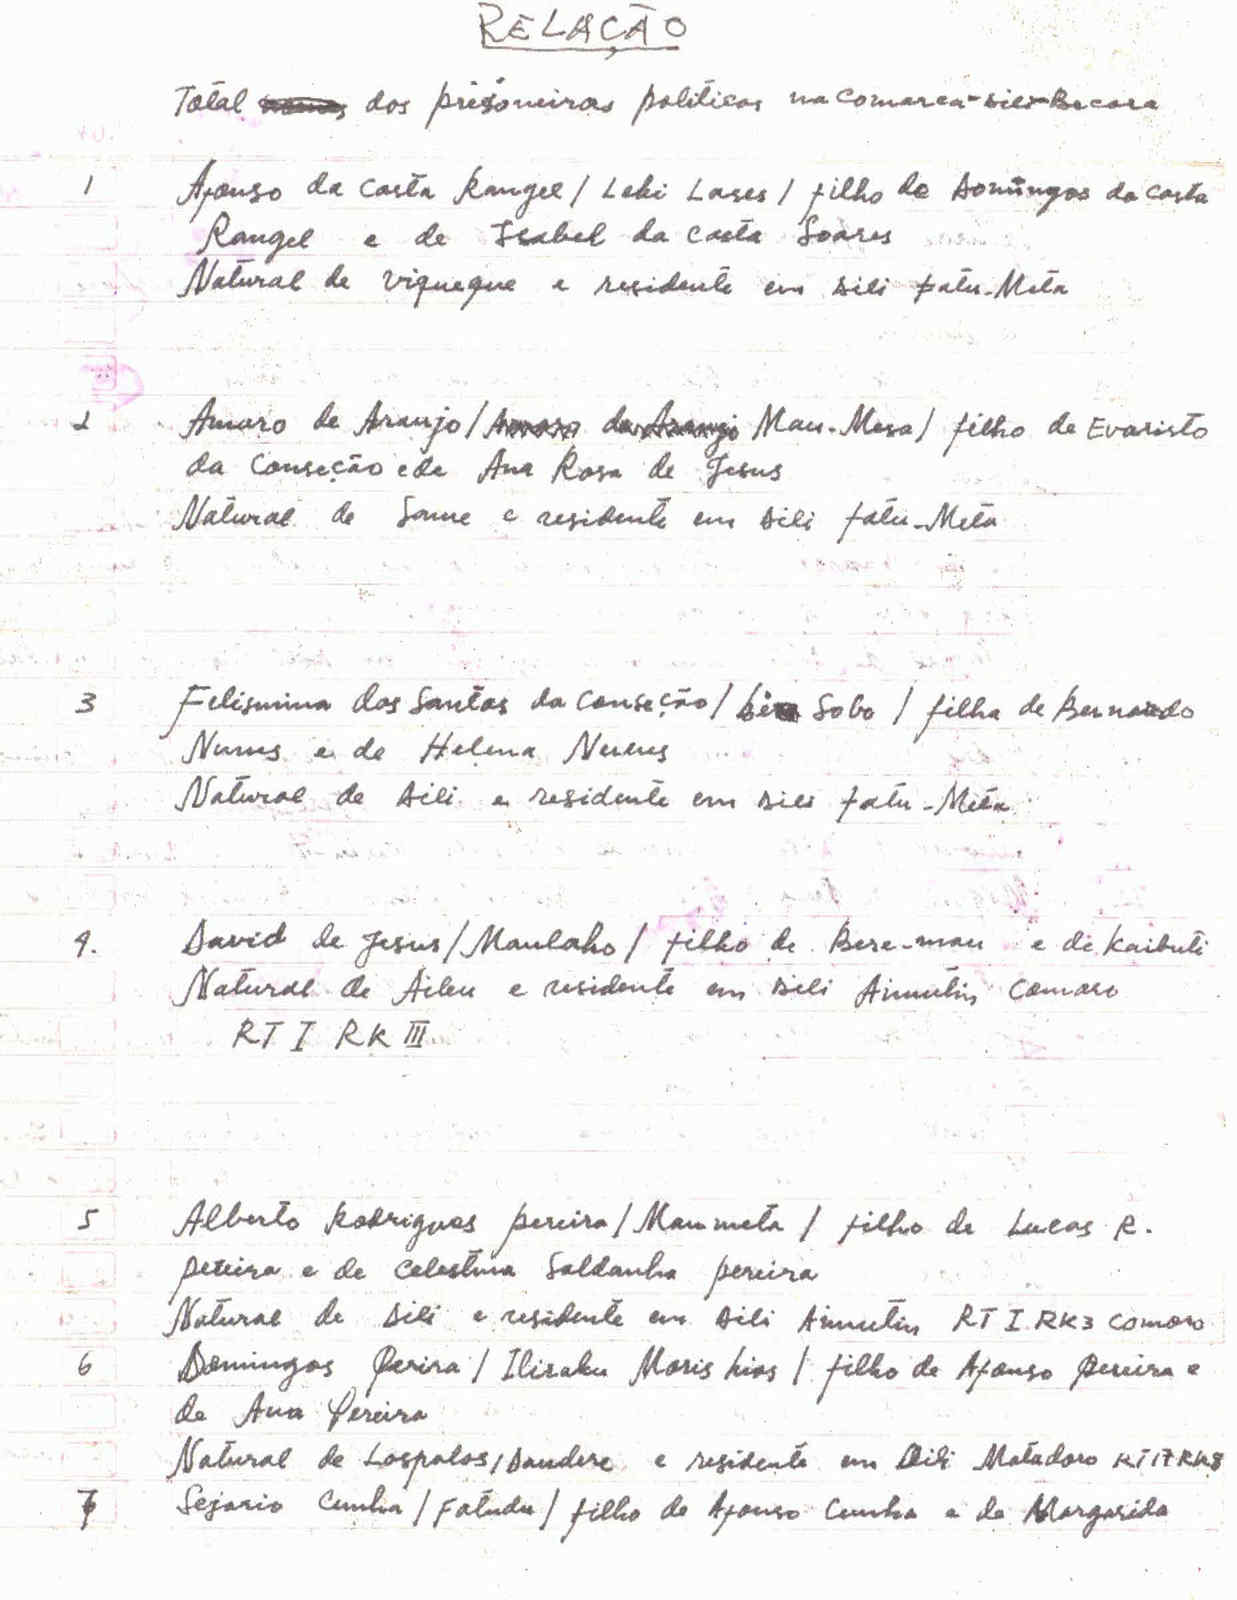 RELAÇÃO
Total dos prisoneiros politicos na comarca-Dili-Becora
1 Afonso da Costa Rangel / Leki Lases / filho de Domingos da Costa
Rangel e de Isabel da Costa Soares
Natural de Viqueque e residente em Dili fatu-Meta
2 Amaro de Araujo / Mau-Mesa / filho de Evaristo
da Conseção e de Ana Rosa de Jesus
Natural de Same e residente em Dili fatu-Meta
3 Felismina dos Santos da Conseção / Sobo / filha de Bernardo
Nunes e de Helena Nunes
Natural de Dili e residente em Dili fatu-Meta
4. David de Jesus / Maulaho / filho de Bere-mau e de Kaibuti
Natural de Aileu e residente em Dili Aimutin Comoro
RT I RK III
5 Alberto Rodrigues pereira / Maumeta / filho de Lucas R.
pereira e de Celestina Saldanha pereira
Natural de Dili e residente em Dili Aimutin RT I RK3 Comoro
6 Domingos Perira / Iliraku Moris / filho de Afonso Pereira e
de Ana Pereira
Natural de Lospalos, Daudere e residente em Dili Matadoro RT17 RK8
7 Sejario Cunha / Fatudu / filho de Afonso Cunha e de Margarida